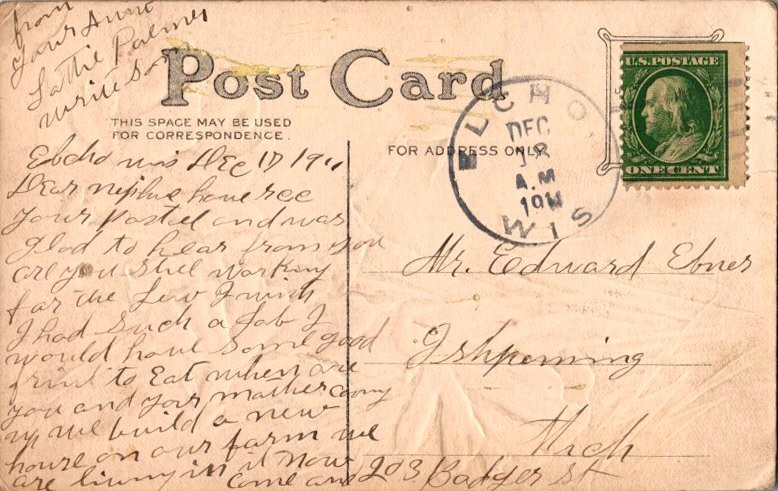 from
Your Aunt
Lottie Palmer
write soon
Post Card
THIS SPACE MAY BE USED
FOR CORRESPONDENCE.
FOR ADDRESS ONLY
U.S. POSTAGE
ONE CENT
ELCHO,
DEC
18
A.M
1911
WIS
Elcho wis Dec 17 1911
Dear nephue have rec
your postal and was
glad to hear from you
are you still working
for the
I had such a Job I
would have some good
fruit to Eat when are
you and your mather comy
up we build a new
house on our farm we
are living in it now
come and
Mr. Edward Ebner
Ishpeming
Mich
203 Badger St